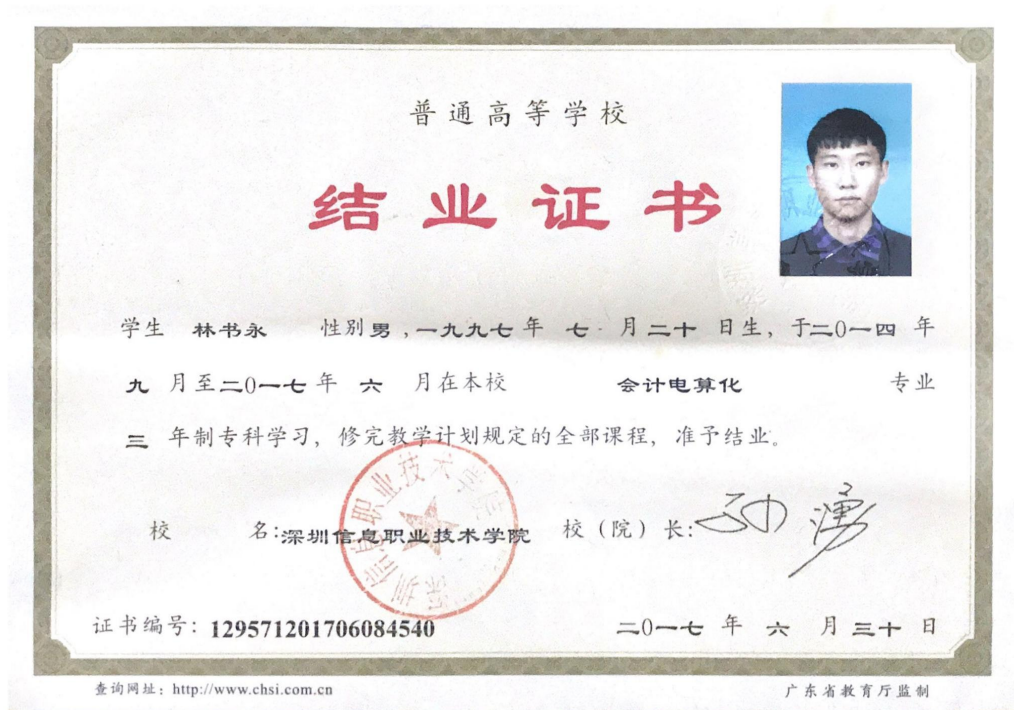 普通高等学校
结业证书
学生 林书永 性别男，一九九七年 七 月二十 日生，于二〇一四 年
九 月至二〇一七 年 六 月在本校 会计电算化 专业
三 年制专科学习，修完教学计划规定的全部课程，准予结业。
校 名:深圳信息职业技术学院 校（院）长:
深圳信息职业技术学院
证书编号：129571201706084540 二〇一七 年 六 月 三十 日
查询网址：http://www.chsi.com.cn 广东省教育厅监制